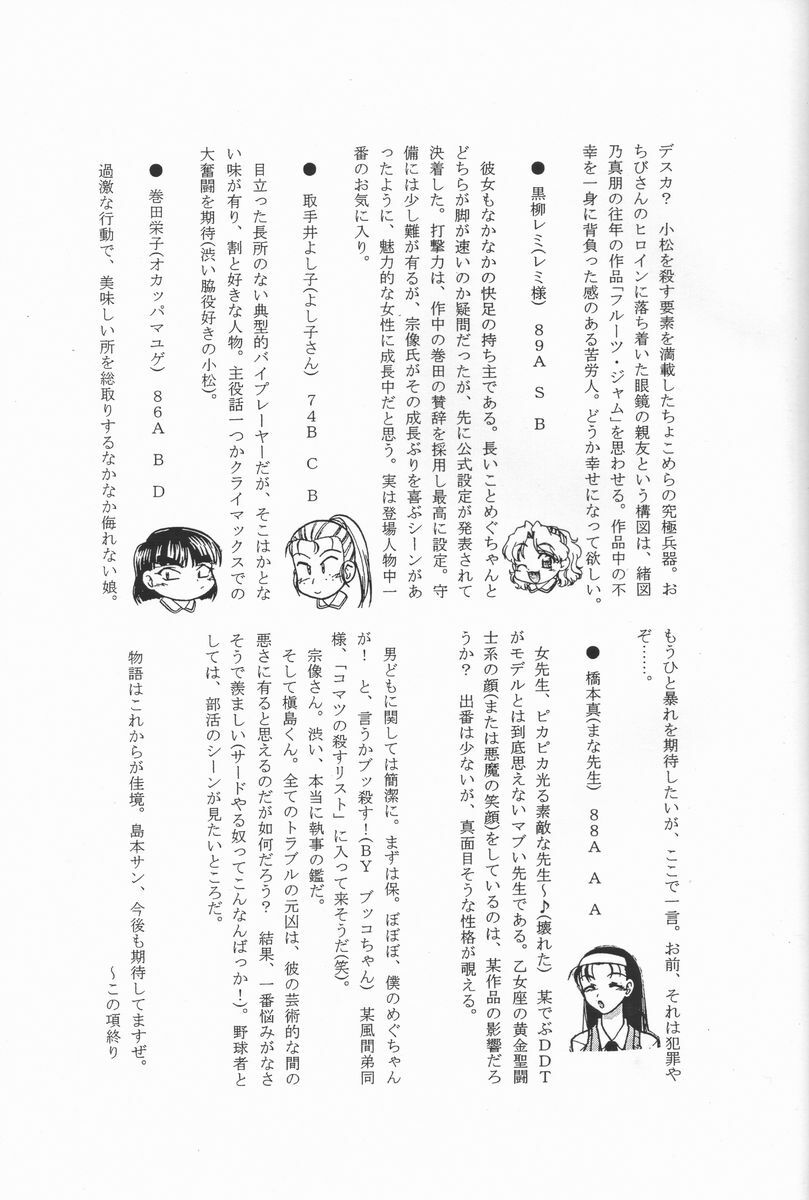 デスカ？　小松を殺す要素を満載したちょこめらの究極兵器。お
ちびさんのヒロインに落ち着いた眼鏡の親友という構図は、緒図
乃真朋の往年の作品「フルーツ・ジャム」を思わせる。作品中の不
幸を一身に背負った感のある苦労人。どうか幸せになって欲しい。
●　黒柳レミ(レミ様)　８９Ａ　Ｓ　Ｂ
彼女もなかなかの快足の持ち主である。長いことめぐちゃんと
どちらが脚が速いのか疑問だったが、先に公式設定が発表されて
決着した。打撃力は、作中の巻田の賛辞を採用し最高に設定。守
備には少し難が有るが、宗像氏がその成長ぶりを喜ぶシーンがあ
ったように、魅力的な女性に成長中だと思う。実は登場人物中一
番のお気に入り。
●　取手井よし子(よし子さん)　７４Ｂ　Ｃ　Ｂ
目立った長所のない典型的バイプレーヤーだが、そこはかとな
い味が有り、割と好きな人物。主役話一つかクライマックスでの
大奮闘を期待(渋い脇役好きの小松)。
●　巻田栄子(オカッパマユゲ)　８６Ａ　Ｂ　Ｄ
過激な行動で、美味しい所を総取りするなかなか侮れない娘。
もうひと暴れを期待したいが、ここで一言。お前、それは犯罪や
ぞ……。
●　橋本真(まな先生)　８８Ａ　Ａ　Ａ
女先生、ピカピカ光る素敵な先生～♪(壊れた)　某でぶＤＤＴ
がモデルとは到底思えないマブい先生である。乙女座の黄金聖闘
士系の顔(または悪魔の笑顔)をしているのは、某作品の影響だろ
うか？　出番は少ないが、真面目そうな性格が覗える。
男どもに関しては簡潔に。まずは保。ぼぼぼ、僕のめぐちゃん
が！　と、言うかブッ殺す！(ＢＹ　ブッコちゃん)　某風間弟同
様、「コマツの殺すリスト」に入って来そうだ(笑)。
宗像さん。渋い、本当に執事の鑑だ。
そして槇島くん。全てのトラブルの元凶は、彼の芸術的な間の
悪さに有ると思えるのだが如何だろう？　結果、一番悩みがなさ
そうで羨ましい(サードやる奴ってこんなんばっか！)。野球者と
しては、部活のシーンが見たいところだ。
物語はこれからが佳境。島本サン、今後も期待してますぜ。
～この項終り